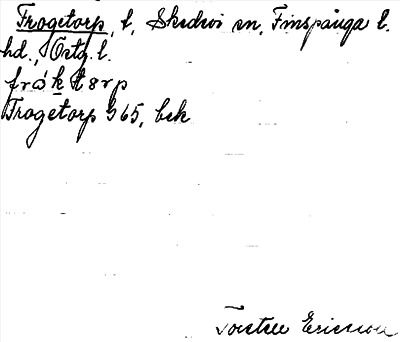 Frogetorp, t, Skedevi sn, Finspånga l.
hd., Östg. l.
frók tɷrp
Frogetorp G65, bek
Torsten Ericsson